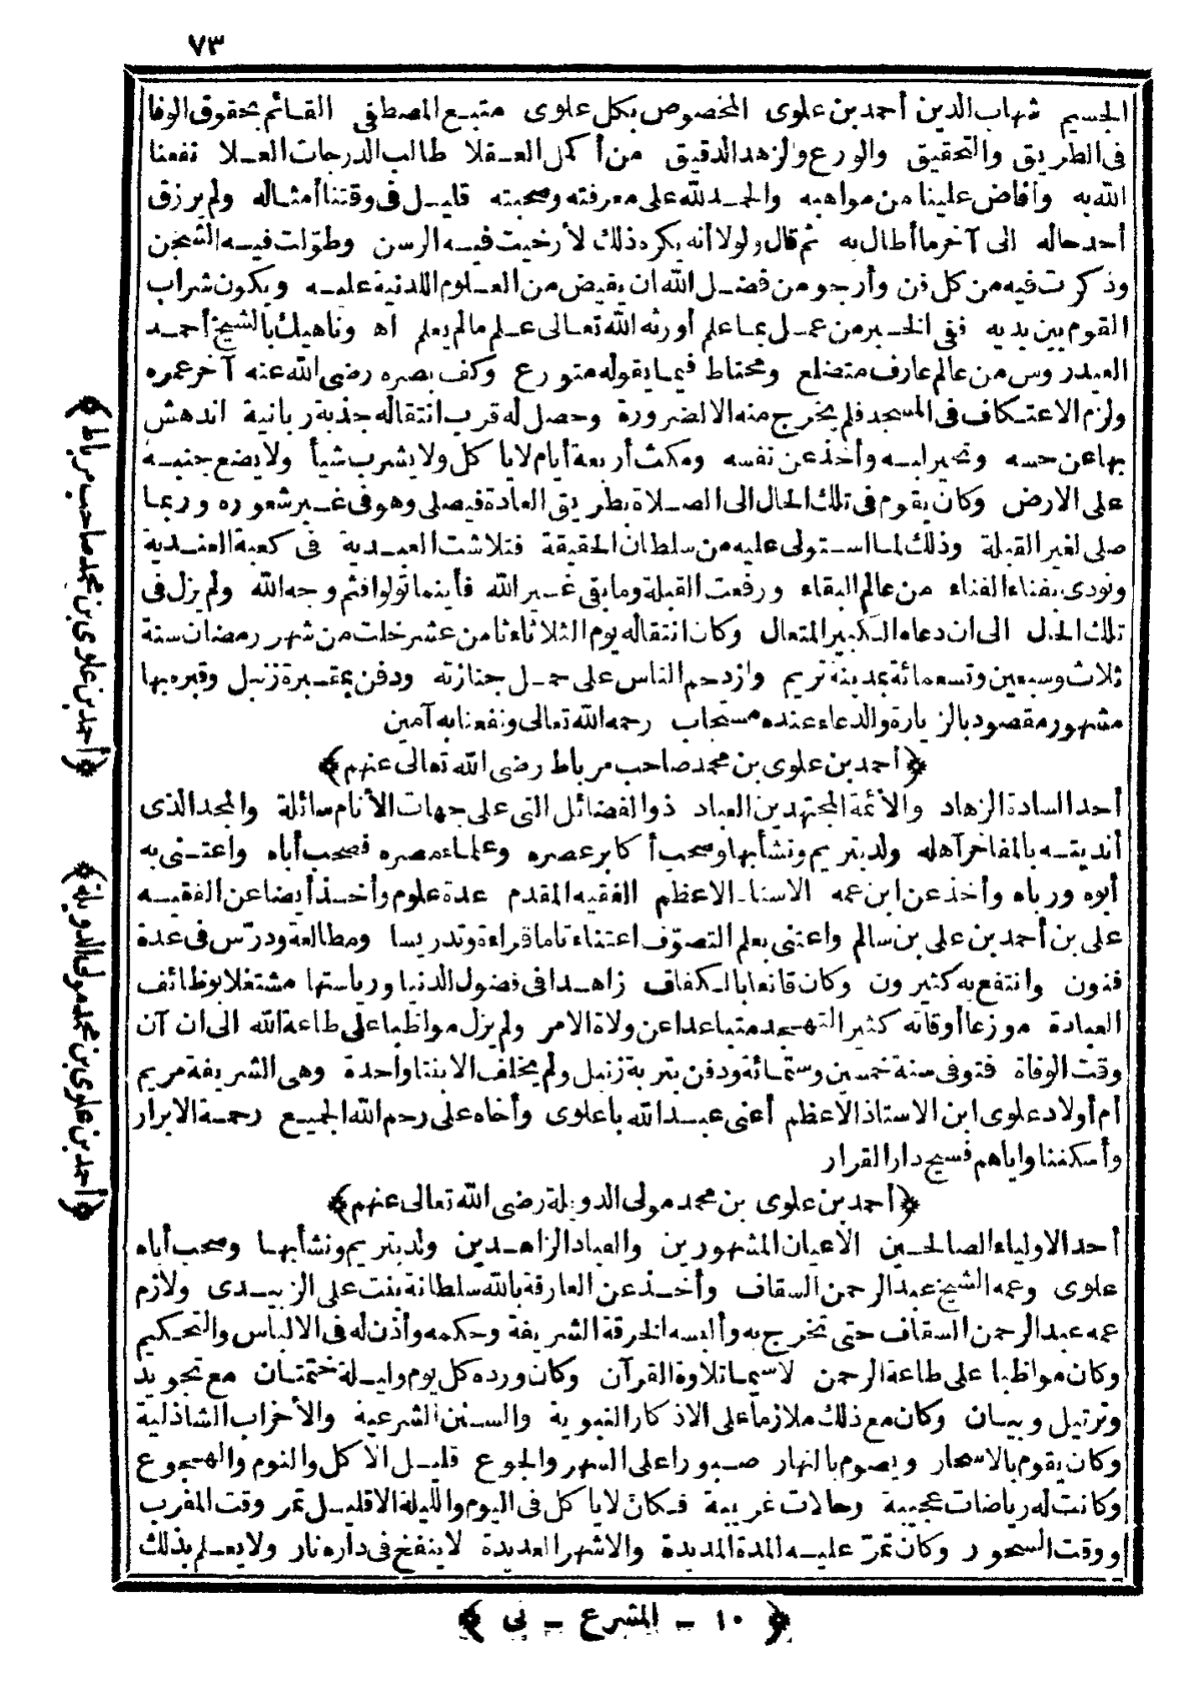 ٧٣
الجسيم شهاب الدين أحمد بن علوى المخصوص بكل علوى متبع المصطفى القائم بحقوق الوفا
فى الطريق والتحقيق والورع والزهد الدقيق من أكمل العقلا طالب الدرجات العلا نفعنا
الله به وأفاض علينا من مواهبه والحمد لله على معرفته وصحبته قليل فى وقتنا أمثاله ولم يرزق
أحد حاله الى آخر ما أطال به ثم قال ولولا أنه يكره ذلك لأرخيت فيه الرسن وطولت فيه الشجن
وذكرت فيه من كل فن وأرجو من فضل الله ان يفيض من العلوم اللدنية عليه ويكون شراب
القوم بين يديه ففى الخبر من عمل بما علم أورثه الله تعالى علم ما لم يعلم اه وناهيك بالشيخ أحمد
العيدروس من عالم عارف متضلع ومحتاط فيما يقوله متورع وكف بصره رضى الله عنه آخر عمره
ولزم الاعتكاف فى المسجد فلم يخرج منه الا لضرورة وحصل له قرب انتقاله جذبة ربانية اندهش
بها عن حسه وتحير لبه وأخذ عن نفسه ومكث أربعة أيام لا يأكل ولا يشرب شيأ ولا يضع جنبه
على الارض وكان يقوم فى تلك الحال الى الصلاة بطريق العادة فيصلى وهو فى غير شعوره وربما
صلى لغير القبلة وذلك لما استولى عليه من سلطان الحقيقة فتلاشت العبدية فى كعبة العندية
ونودى بفناء الفناء من عالم البقاء ورفعت القبلة وما بقى غير الله فأينما تولوا فثم وجه الله ولم يزل فى
تلك الحال الى ان دعاه الكبير المتعال وكان انتقاله يوم الثلاثاء ثامن عشر خلت من شهر رمضان سنة
ثلاث وسبعين وتسعمائة بمدينة تريم وازدحم الناس على حمل جنازته ودفن بمقبرة زنبل وقبره بها
مشهور مقصود بالزيارة والدعاء عنده مستجاب رحمه الله تعالى ونفعنا به آمين
﴿أحمد بن علوى بن محمد صاحب مرباط رضى الله تعالى عنهم﴾
أحد السادة الزهاد والأئمة المجتهدين العباد ذو الفضائل التى على جهات الأنام سائلة والمجد الذى
أنديته بالمفاخر آهله ولد بتريم ونشأ بها وصحب أكابر عصره وعلماء مصره فصحب أباه واعتنى به
أبوه ورباه وأخذ عن ابن عمه الاستاذ الاعظم الفقيه المقدم عدة علوم وأخذ أيضا عن الفقيه
على بن أحمد بن على بن سالم واعتنى بعلم التصوّف اعتناء تاما قراءة وتدريسا ومطالعة ودرّس فى عدة
فنون وانتفع به كثيرون وكان قانعا بالكفاف زاهدا فى فضول الدنيا ورياستها مشتغلا بوظائف
العبادة موزعا أوقاته كثير التهجد متباعدا عن ولاة الامر ولم يزل مواظبا على طاعة الله الى ان آن
وقت الوفاة فتوفى سنة خمسين وستمائة ودفن بتربة زنبل ولم يخلف الا بنتا واحدة وهى الشريفة مريم
أم أولاد علوى ابن الاستاذ الأعظم أعنى عبد الله باعلوى وأخاه على رحم الله الجميع رحمة الابرار
وأسكننا واياهم فسيح دار القرار
﴿أحمد بن علوى بن محمد مولى الدويلة رضى الله تعالى عنهم﴾
أحد الاولياء الصالحين الأعيان المشهورين والعباد الزاهدين ولد بتريم ونشأ بها وصحب أباه
علوى وعمه الشيخ عبد الرحمن السقاف وأخذ عن العارفة بالله سلطانة بنت على الزبيدى ولازم
عمه عبد الرحمن السقاف حتى تخرج به وألبسه الخرقة الشريفة وحكمه وأذن له فى الالباس والتحكيم
وكان مواظبا على طاعة الرحمن لاسيما تلاوة القرآن وكان ورده كل يوم وليلة ختمتان مع تجويد
وترتيل وبيان وكان مع ذلك ملازما على الاذكار النبوية والسنن الشرعية والأحزاب الشاذلية
وكان يقوم بالاسحار ويصوم بالنهار صبورا على السهر والجوع قليل الأكل والنوم والهجوع
وكانت له رياضات عجيبة وحالات غريبة فكان لا يأكل فى اليوم والليلة الا قليل تمر وقت المغرب
ووقت السحور وكان تمرّ عليه المدة المديدة والاشهر العديدة لا ينفخ فى داره نار ولا يعلم بذلك
﴿أحمد بن علوى بن محمد صاحب مرباط﴾
﴿أحمد بن علوى بن محمد مولى الدويلة﴾
﴿١٠ - المشرع - نى﴾